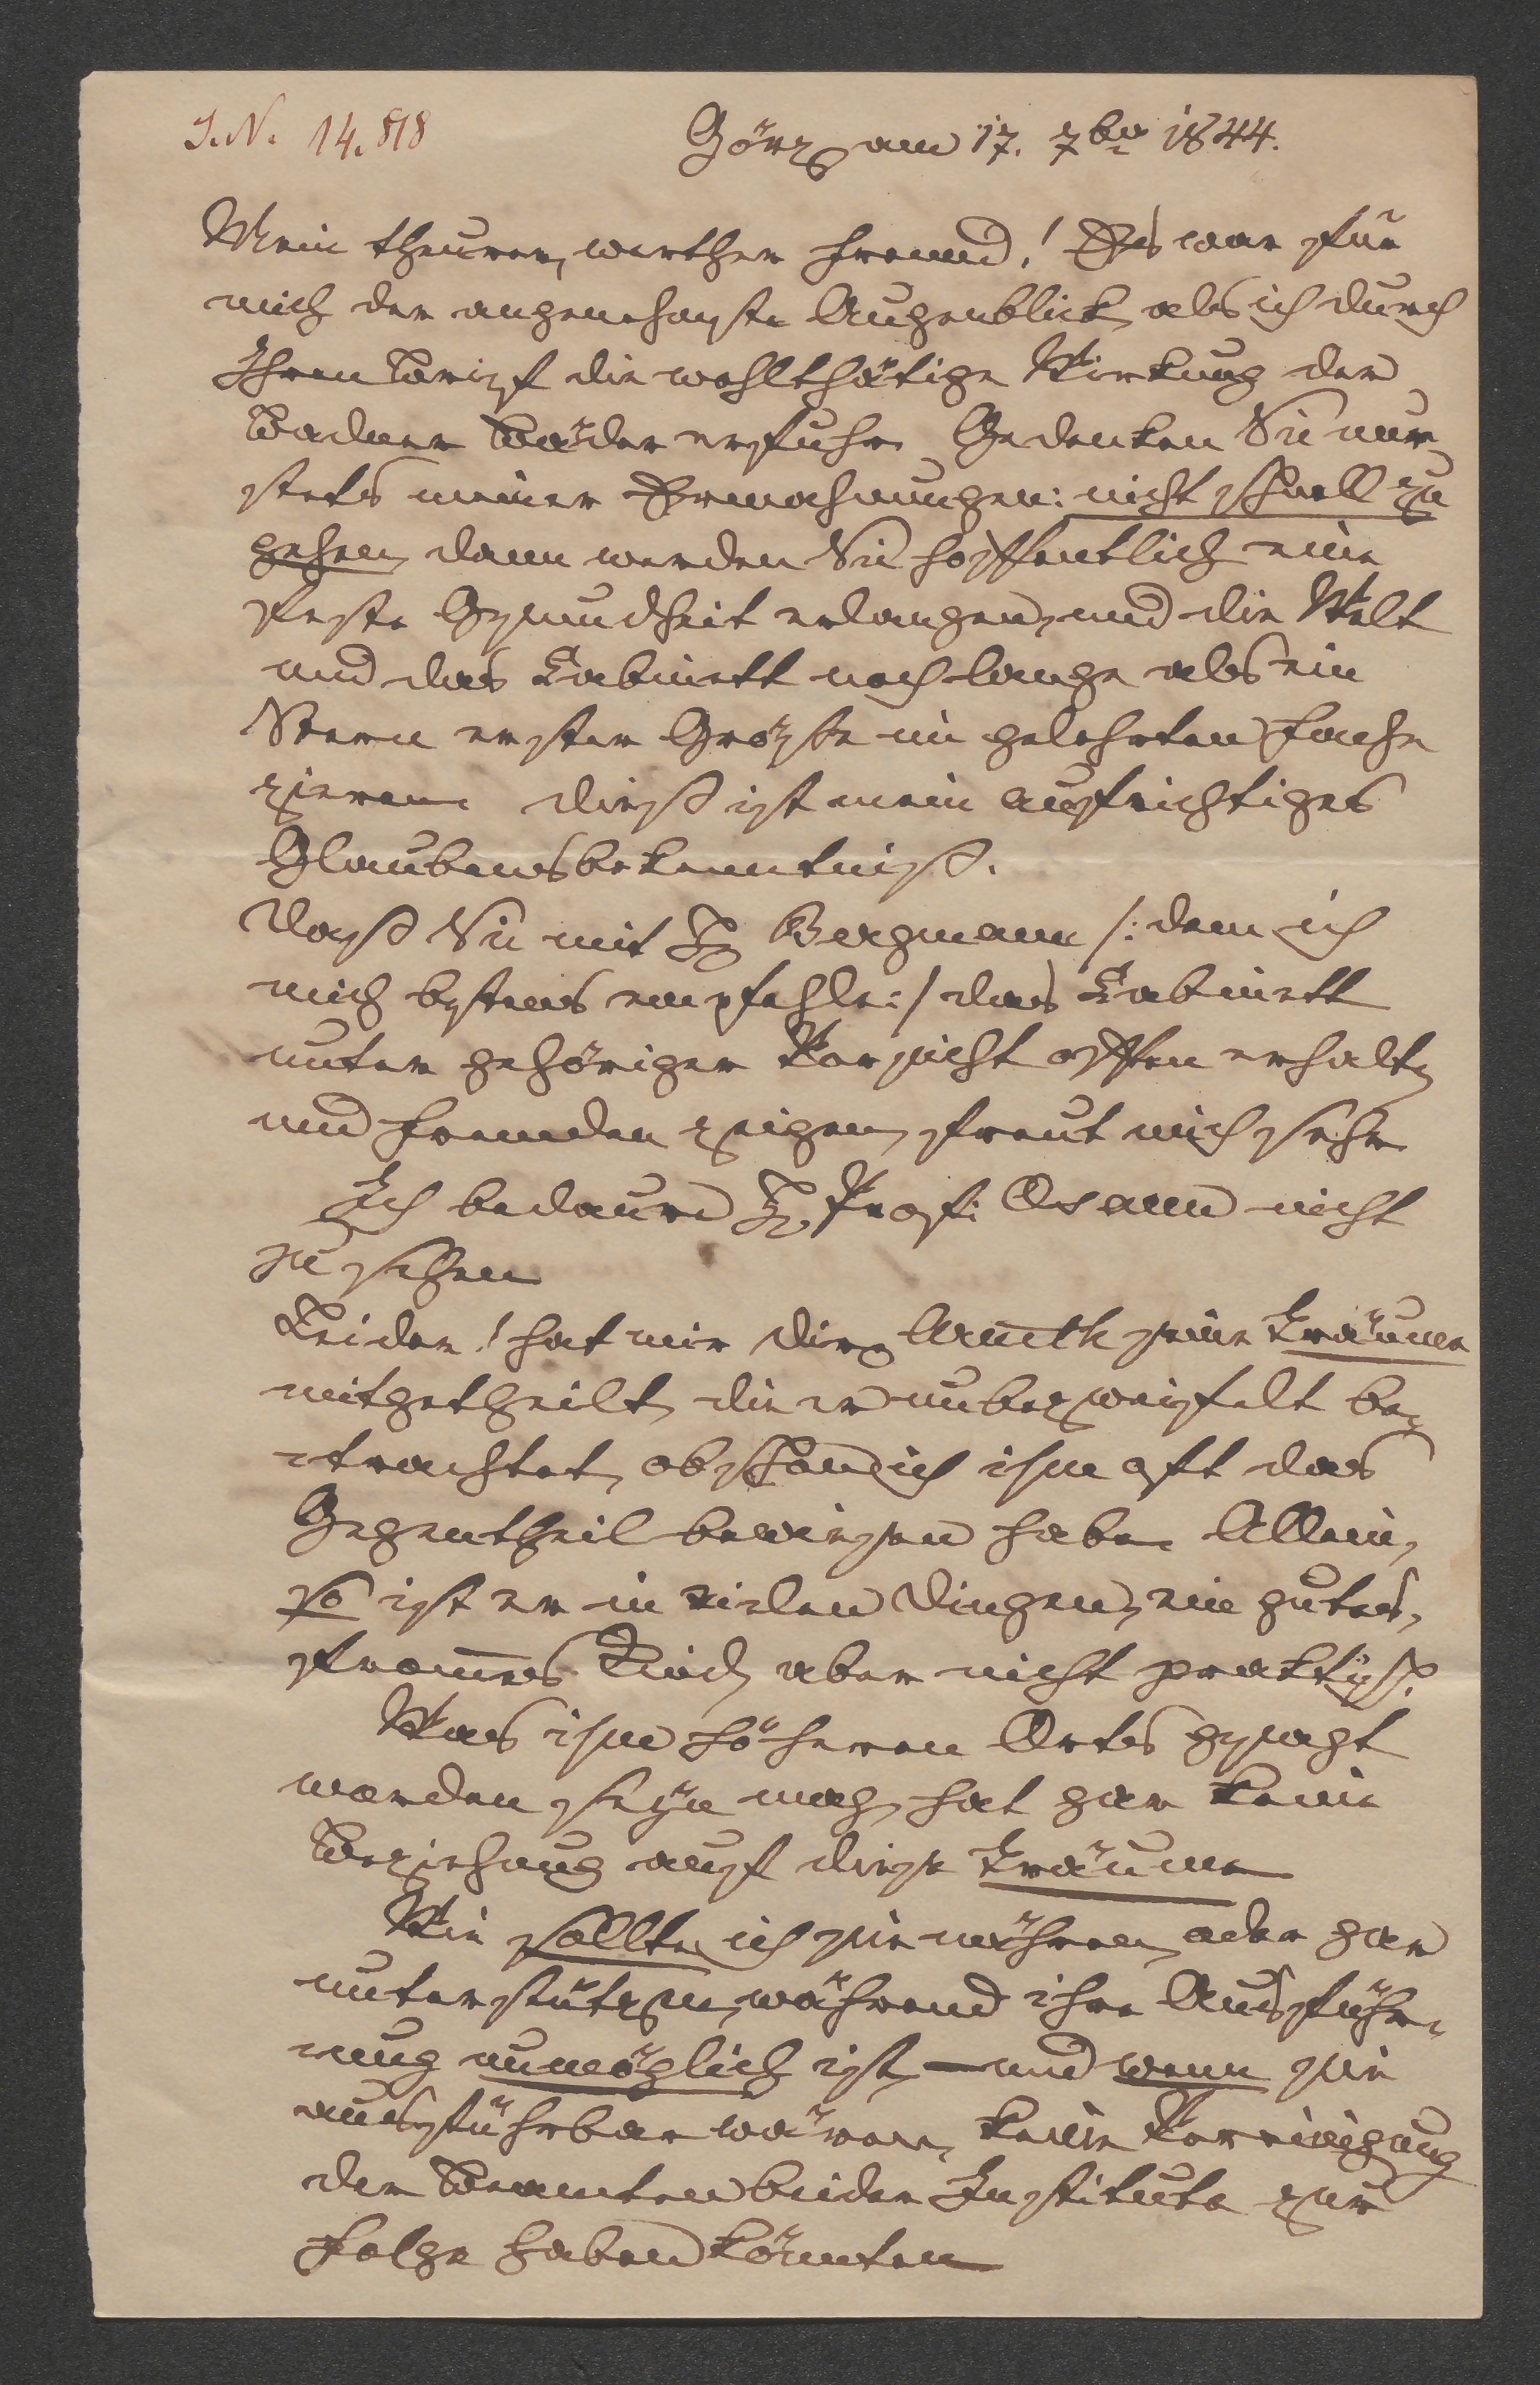 I.N. 14.818
Görz am 17. 7ber 1844.
Mein theurer, werther Freund! Es war für
mich der angenehmste Augenblick, als ich durch
Ihren Brief die wohlthätige Wirkung der
Badner Bäder erfuhr. Gedenken Sie nur
stets meiner Ermahnungen: nicht schnell zu
gehen, dann werden Sie hoffentlich eine
feste Gesundheit erlangen, und die Welt
und das Cabinett noch lange als ein
Stern erster Größe im gelehrten Fache
zieren. Dieß ist mein aufrichtiges
Glaubensbekenntniß.
Daß Sie mit H. Bergmann /: dem ich
mich bestens empfehle :/ das Cabinett
unter gehöriger Vorsicht offen erhalten
und Fremden zeigen, freut mich sehr.
Ich bedaure H. Prof: Osann nicht
zu sehen.
Leider! hat mir Dir. Arneth seine Träume
mitgetheilt, die er unbezweifelt be-
trachtet, obschon ich ihm oft das
Gegentheil bewiesen habe. Allein,
so ist er in vielen Dingen, ein gutes,
from̅es Kind, aber nicht praktisch.
Was ihm höheren Orts gesagt
worden seÿn mag, hat gar keine
Beziehung auf diese Träume.
Wie sollte ich sie nähren, oder gar
unterstützen, während ihre Ausführ-
ung unmöglich ist, – und wenn sie
ausführbar wären, keine Vereinigung
der Beamten beider Institute zur
Folge haben könnten